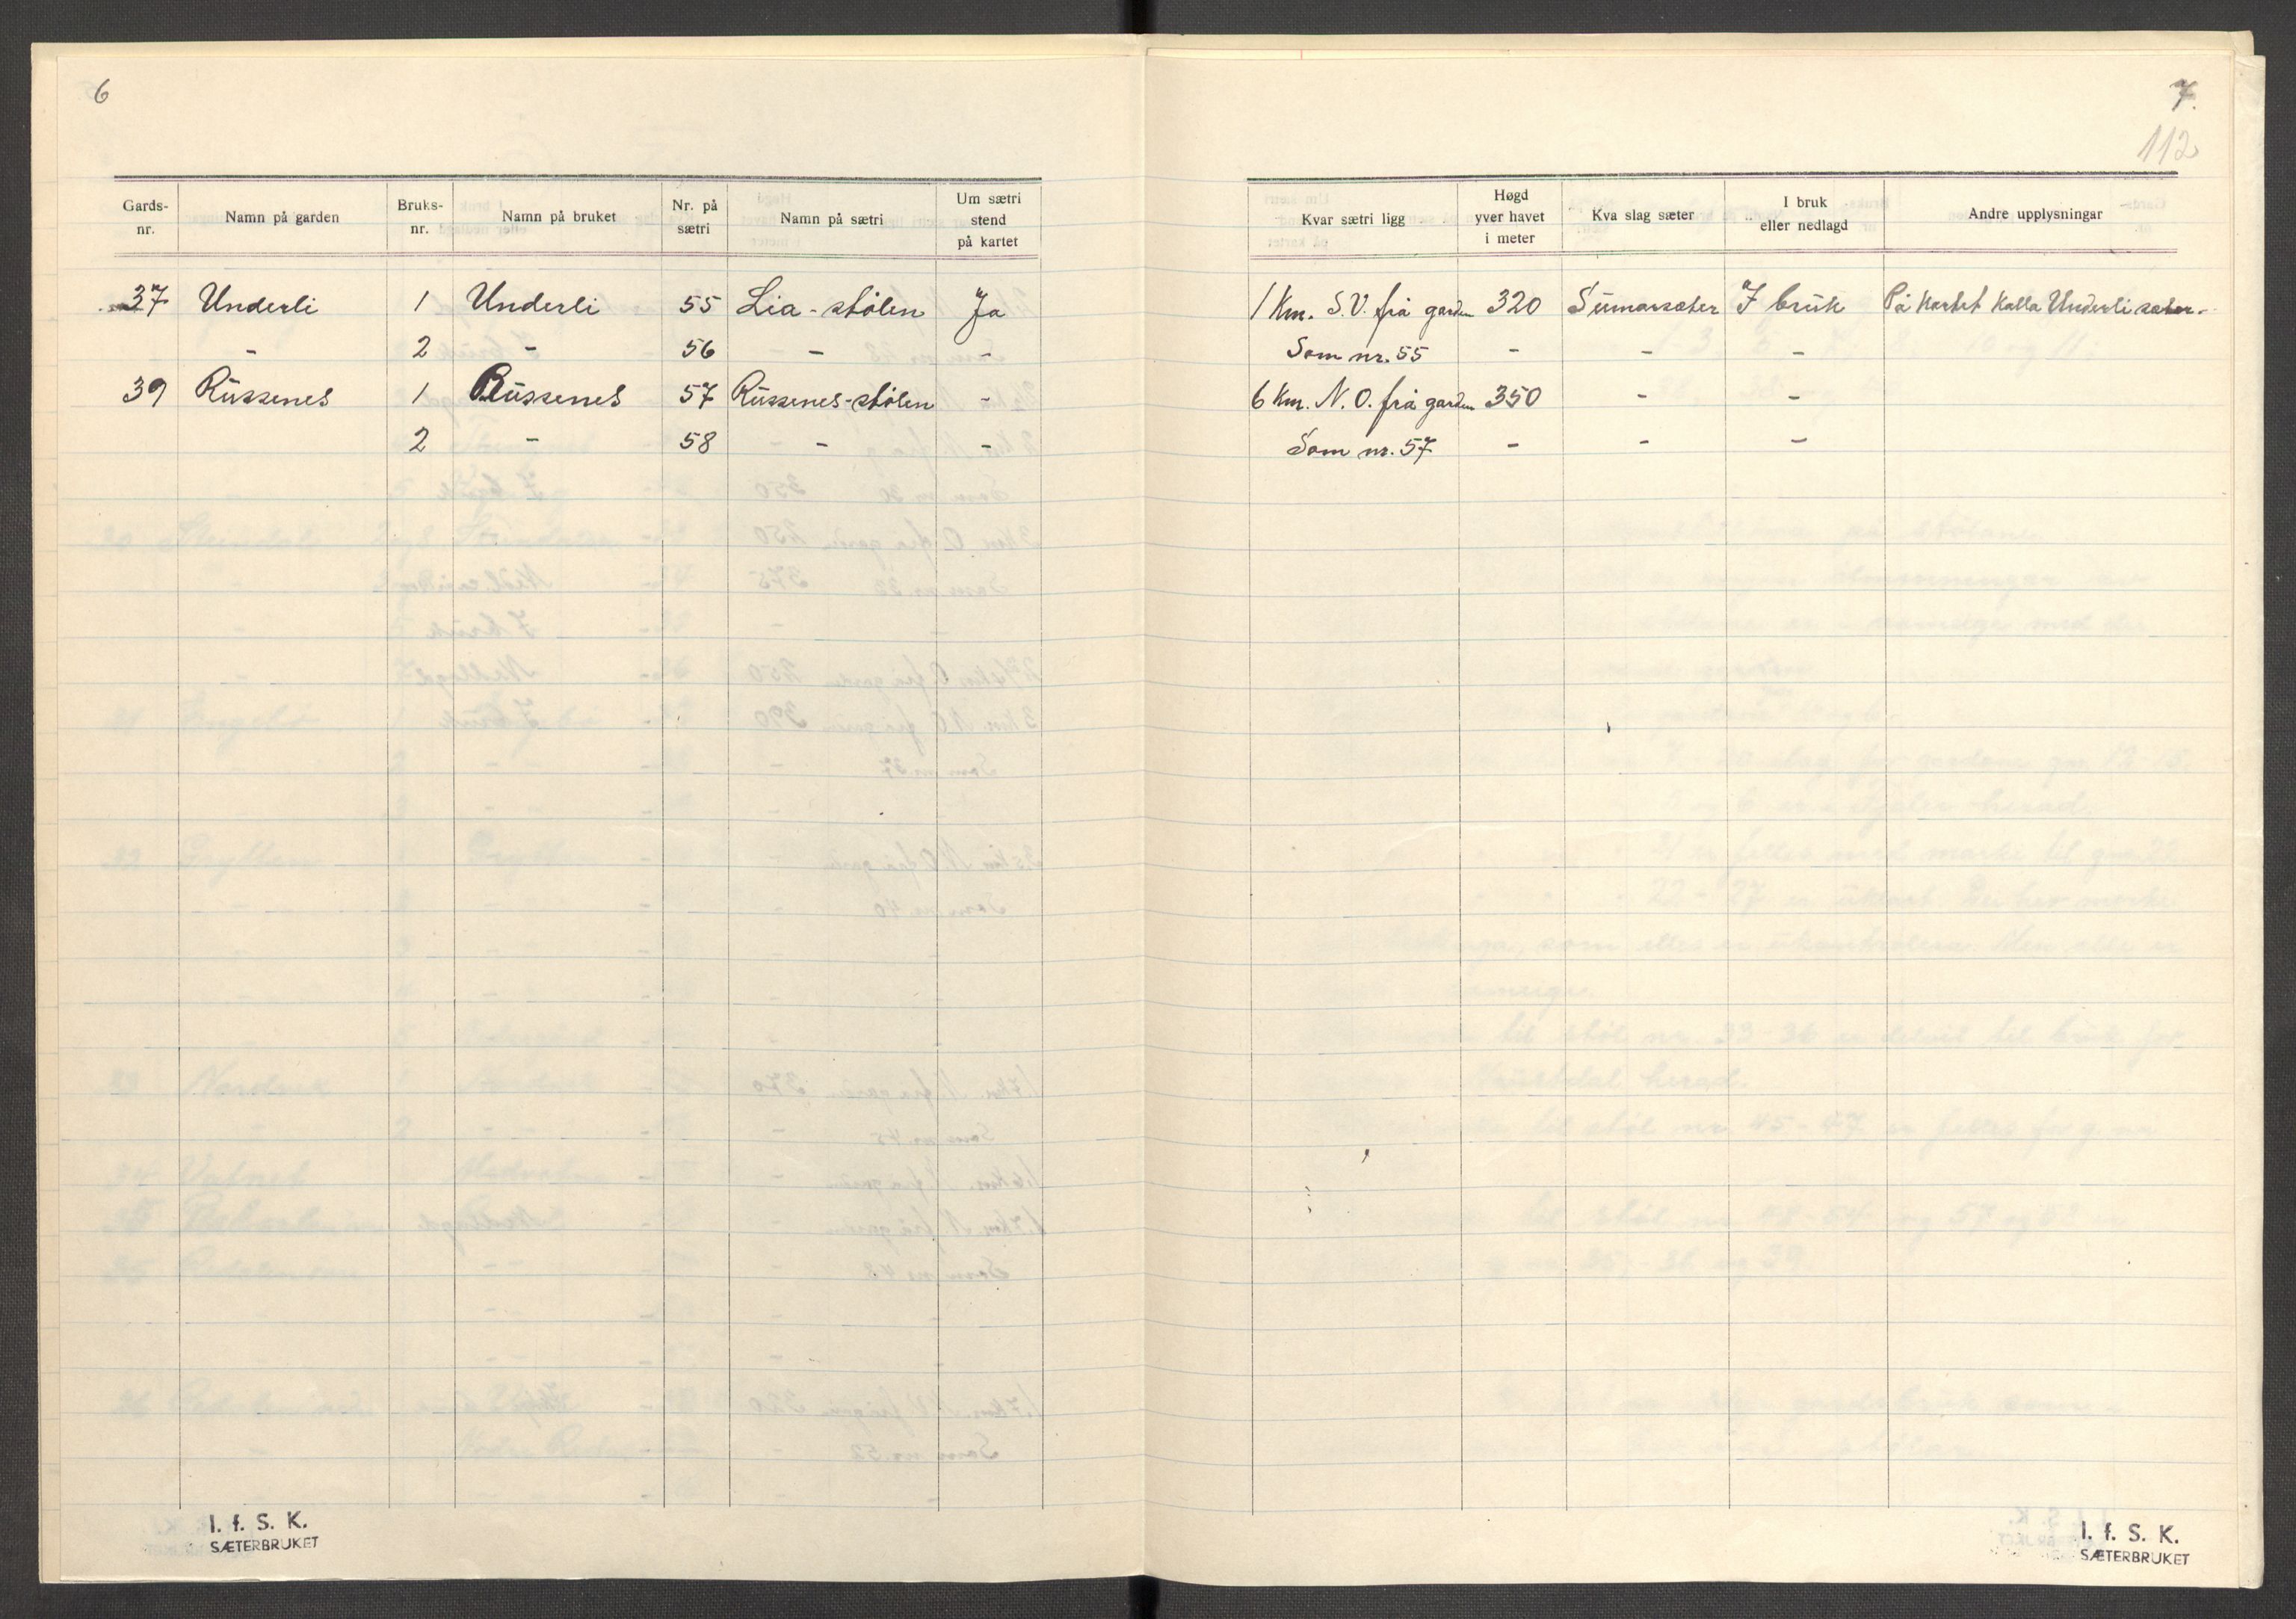 6
Gards-nr. Namn på garden Bruks-nr. Namn på bruket Nr. på sætri Namn på sætri Um sætri stend på kartet
37 Underli 1 Underli 55 Lia-stølen Ja
- 2 - 56 - -
39 Rüssenes 1 Rüssenes 57 Rüssenes-stølen -
2 - 58 - -
I. f. S. K.
SÆTERBRUKET
7.
112
Kvar sætri ligg Høgd yver havet i meter Kva slag sæter I bruk eller nedlagd Andre upplysningar
1 Km. S.V. frå garden 320 Sümarsæter I brük På kartet kalla Underlisæter.
Som nr. 55 - - -
6 Km. N.O. frå garden 350 - -
Som nr. 57 - - -
I. f. S. K.
SÆTERBRUKET